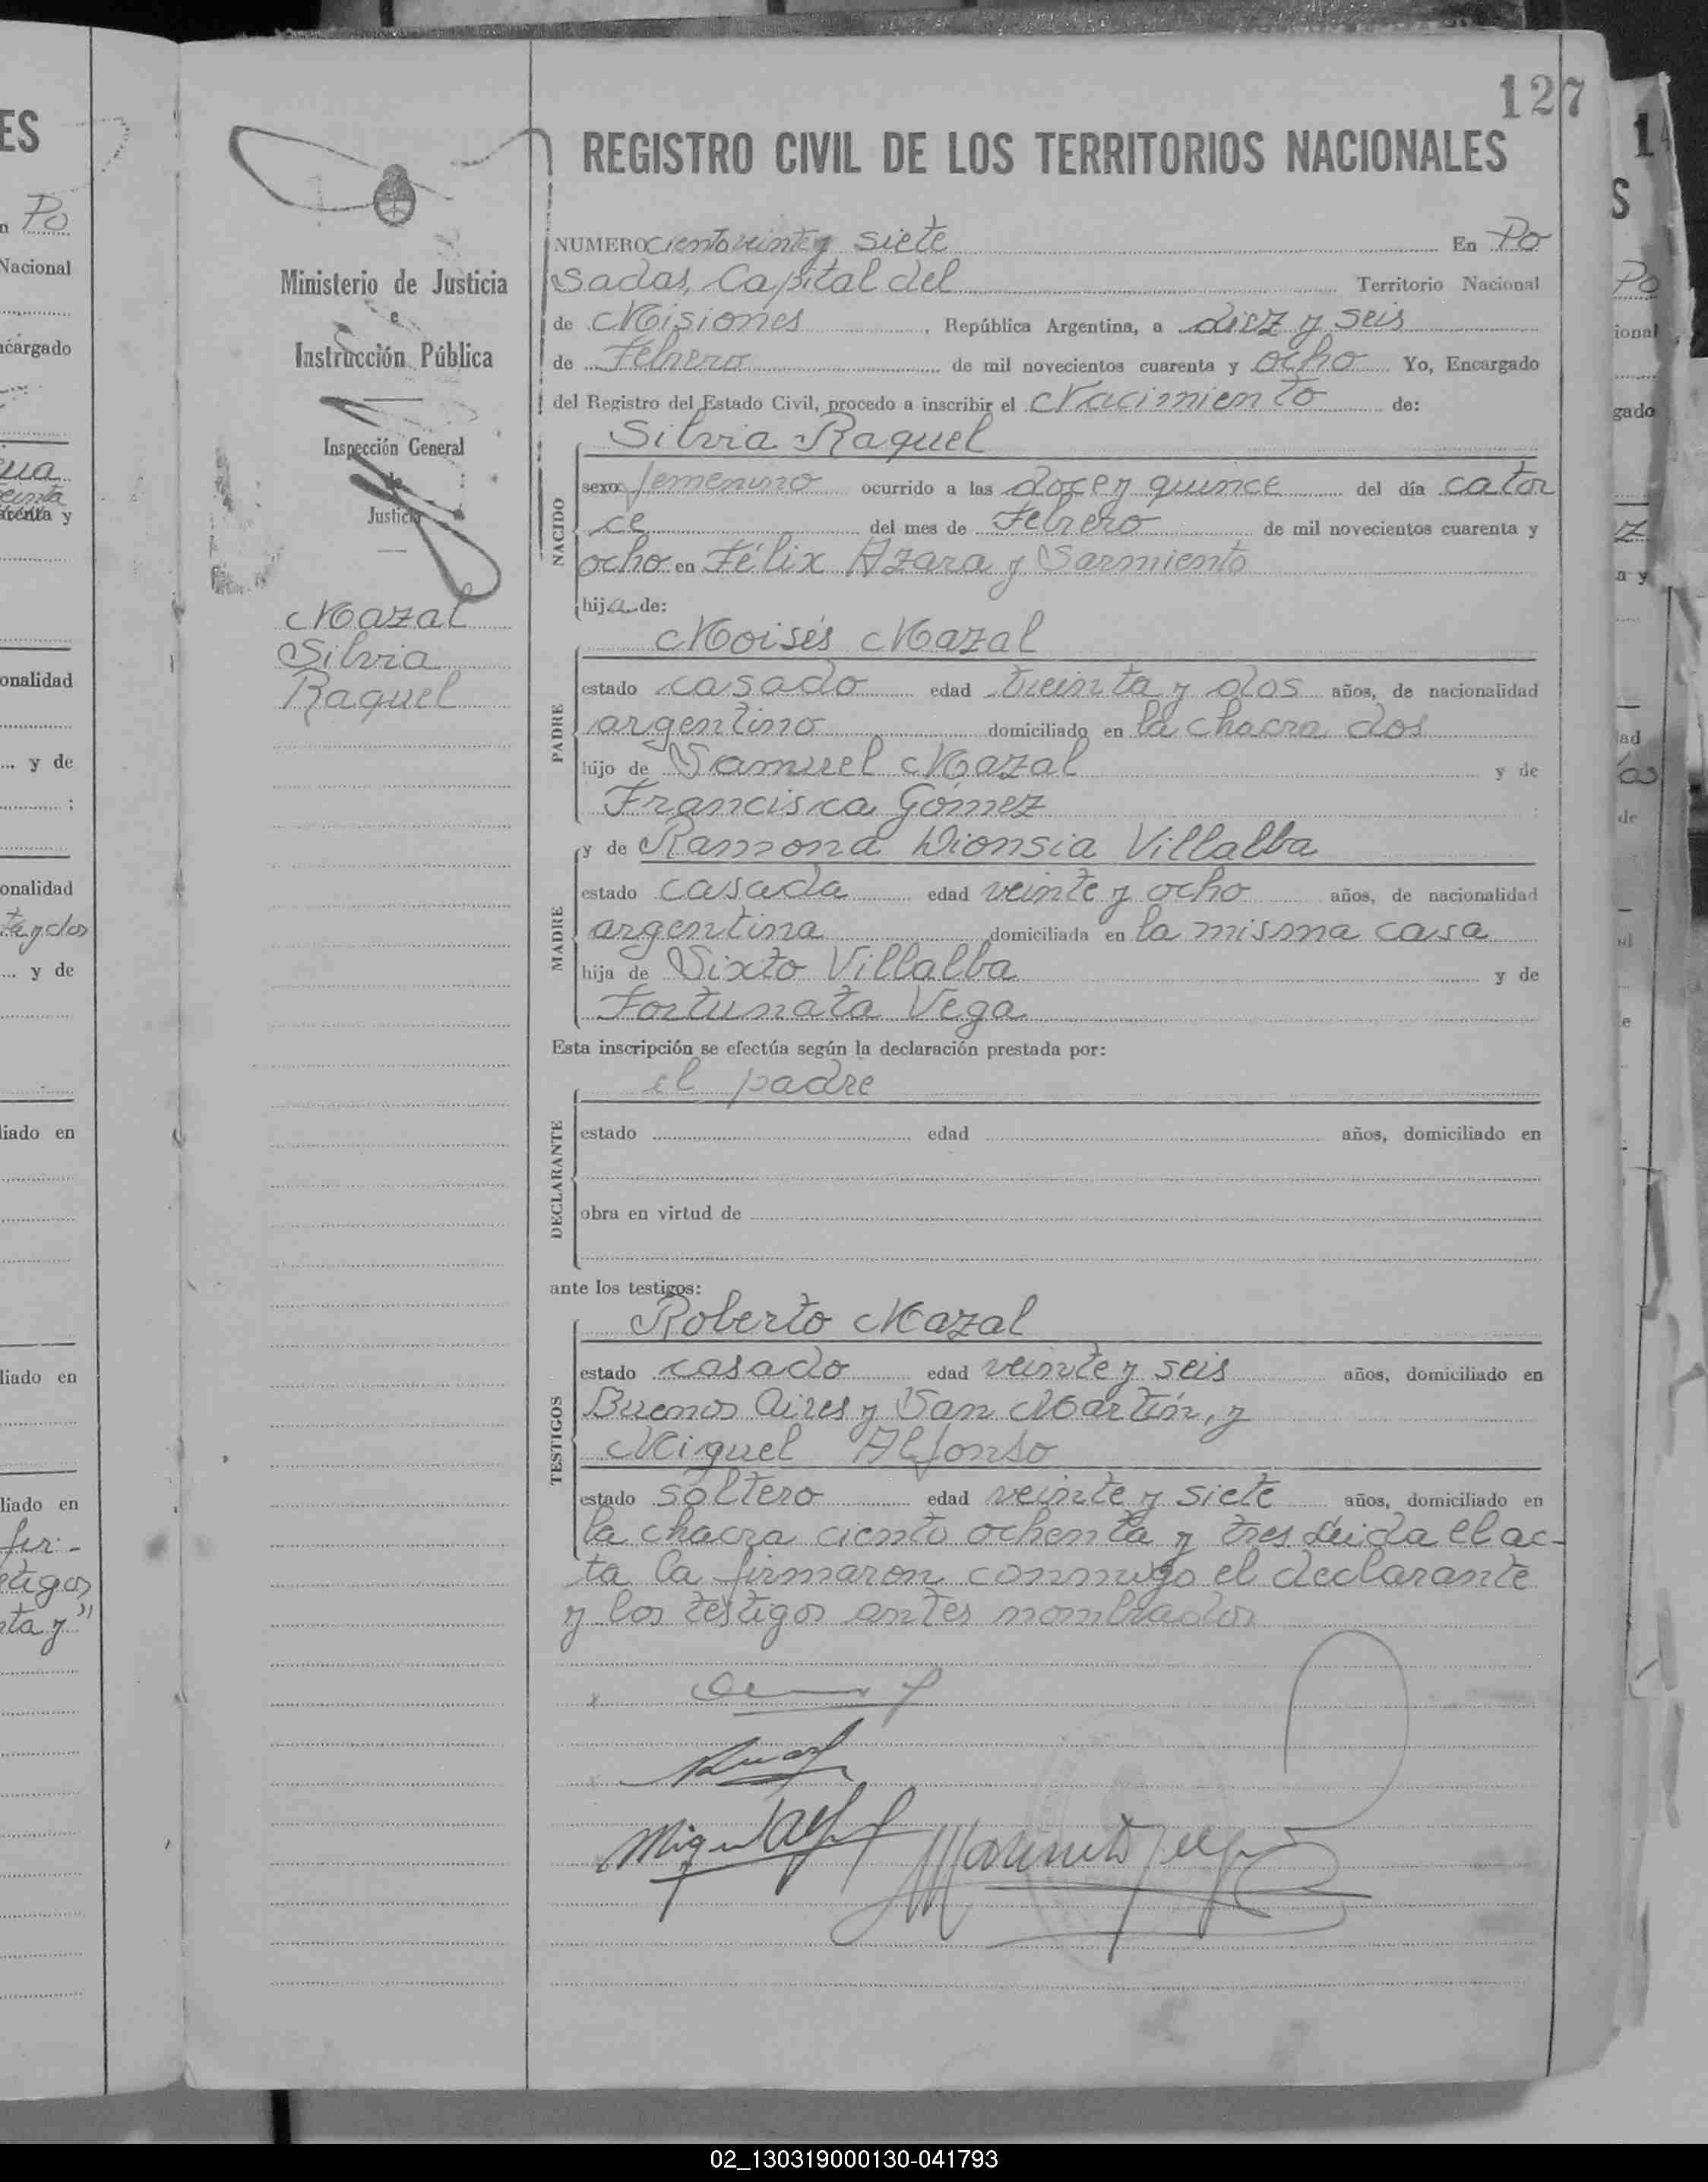 127
REGISTRO CIVIL DE LOS TERRITORIOS NACIONALES
Ministerio de Justicia
e
Instrucción Pública
Inspección General
de
Justicia
Mazal
Silvia
Raquel
NUMERO ciento veinte y siete En Po
sadas, Capital del Territorio Nacional
de Misiones, República Argentina, a diez y seis
de Febrero de mil novecientos cuarenta y ocho Yo, Encargado
del Registro del Estado Civil, procedo a inscribir el Nacimiento de:
Silvia Raquel
NACIDO
sexo femenino ocurrido a las doce y quince del día cator
ce del mes de Febrero de mil novecientos cuarenta y
ocho en Félix Azara y Sarmiento
hija de:
Moisés Mazal
PADRE
estado casado edad treinta y dos años, de nacionalidad
argentino domiciliado en la chacra dos
hijo de Samuel Mazal y de
Francisca Gómez
y de Ramona Dionsia Villalba
MADRE
estado casada edad veinte y ocho años, de nacionalidad
argentina domiciliada en la misma casa
hija de Sixto Villalba y de
Fortunata Vega
Esta inscripción se efectúa según la declaración prestada por:
el padre
DECLARANTE
estado edad años, domiciliado en
obra en virtud de
ante los testigos:
Roberto Mazal
TESTIGOS
estado casado edad veinte y seis años, domiciliado en
Buenos Aires y San Martín, y
Miguel Alfonso
estado soltero edad veinte y siete años, domiciliado en
la chacra ciento ochenta y tres Leida el ac-
ta la firmaron conmigo el declarante
y los testigos antes nombrados
02_130319000130-041793